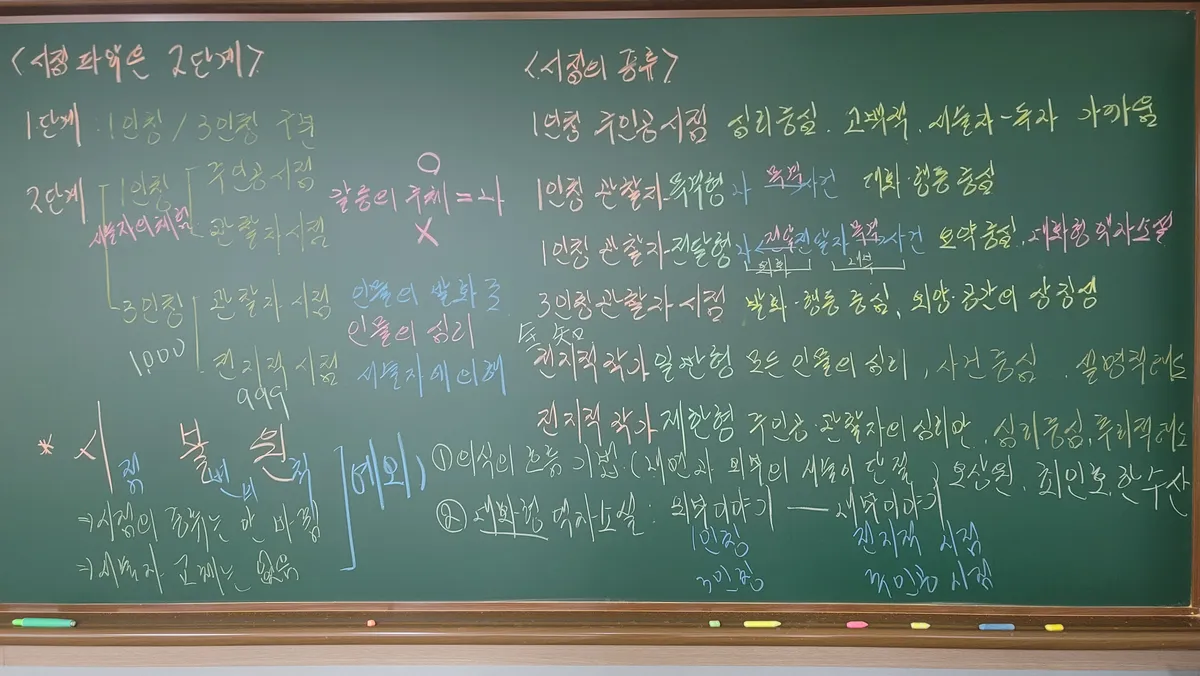 <시점 파악은 2단계>
1단계 : 1인칭 / 3인칭 구분
2단계
1인칭
주인공 시점
관찰자 시점
서술자의 체험
갈등의 주체 = 나
O
X
3인칭
관찰자 시점
전지적 시점
1000
999
인물의 발화로
인물의 심리
서술자에 의해
* 시 불 원
점 변 칙
⇒ 시점의 종류는 안 바뀜
⇒ 서술자 교체는 있음
[예외]
<시점의 종류>
1인칭 주인공 시점 심리중심. 고백적. 서술자-독자 가까움
1인칭 관찰자-목격형 나 목격 사건 대화·행동 중심
1인칭 관찰자-전달형 나 전달 전달자 목격 사건 요약중심, 대화형 액자소설
외화 내부
3인칭 관찰자 시점 발화·행동 중심, 외양·공간의 상징성
전지적 작가 일반형 모든 인물의 심리, 사건 중심. 설명적 태도
전지적 작가 제한형 주인공·관찰자의 심리만, 심리중심,
① 의식의 흐름 기법. ( 내면과 외부의 서술이 단절 ) 오상원, 최인호, 한수산
② 대화형 액자소설 : 외부이야기 — 내부이야기
1인칭 전지적 시점
3인칭 주인공 시점